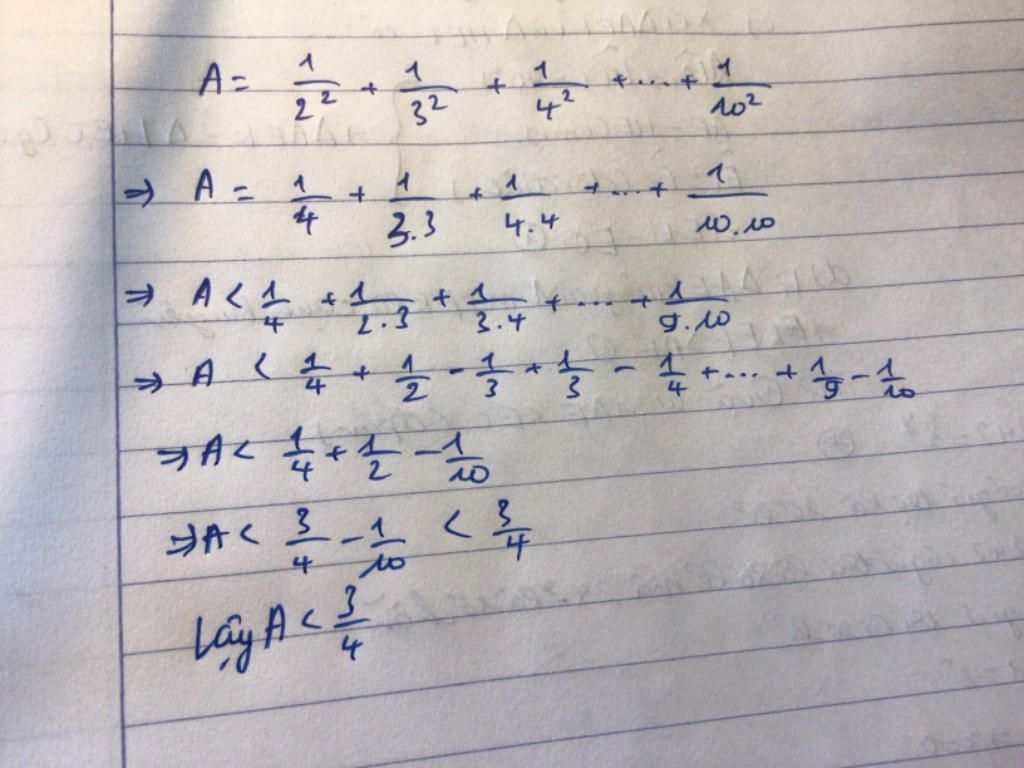 A = 1/2² + 1/3² + 1/4² + ... + 1/10²
⇒ A = 1/4 + 1/3.3 + 1/4.4 + ... + 1/10.10
⇒ A < 1/4 + 1/2.3 + 1/3.4 + ... + 1/9.10
⇒ A < 1/4 + 1/2 - 1/3 + 1/3 - 1/4 + ... + 1/9 - 1/10
⇒ A < 1/4 + 1/2 - 1/10
⇒ A < 3/4 - 1/10 < 3/4
Vậy A < 3/4